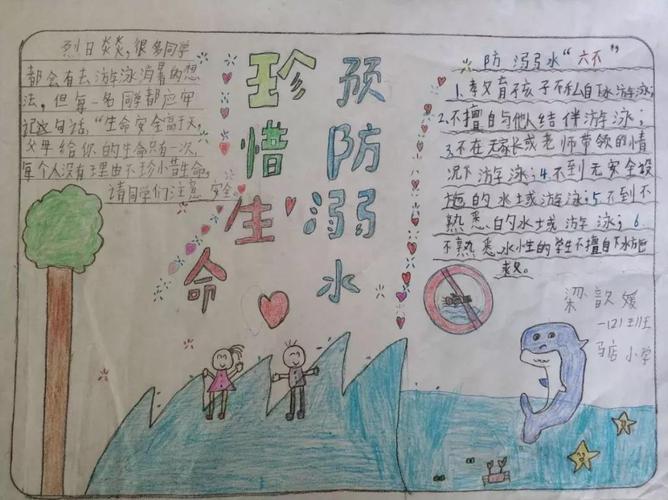 烈日炎炎，很多同学
都会有去游泳消暑的想
法，但每一名同学都应牢
记这句话，“生命安全高于天，
父母给你的生命只有一次，
每个人没有理由不珍惜生命。
请同学们注意安全。
珍惜生命
预防溺水
防溺水“六不”
1.教育孩子不私自下水游泳；
2.不擅自与他人结伴游泳；
3.不在无家长或老师带领的情
况下游泳；4.不到无安全设
施的水域游泳；5不到不
熟悉的水域游泳；6
不熟悉水性的学生不擅自下水施
救。
梁歆媛
一、2）班
马店小学